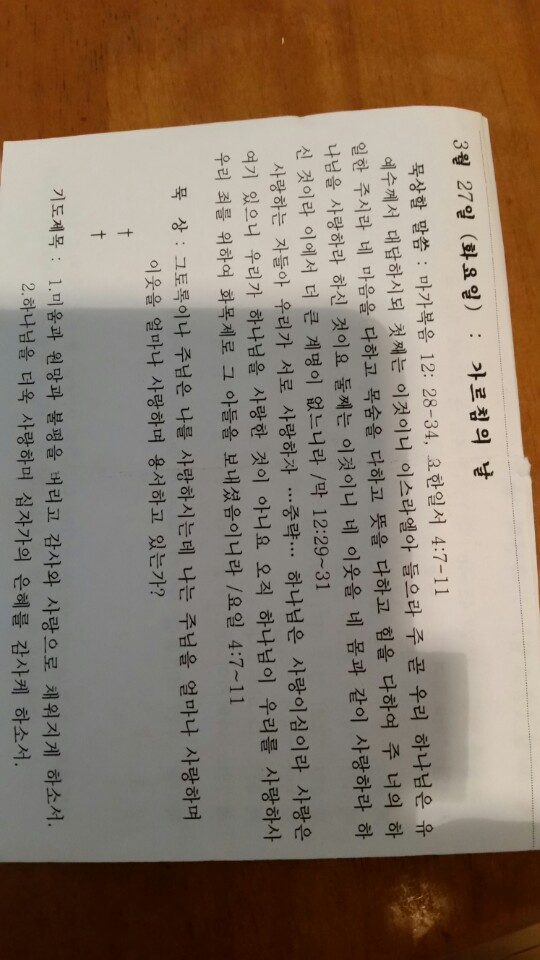 3월 27일 (화요일) : 가르침의 날
묵상할 말씀 : 마가복음 12: 28-34, 요한일서 4:7-11
예수께서 대답하시되 첫째는 이것이니 이스라엘아 들으라 주 곧 우리 하나님은 유
일한 주시라 네 마음을 다하고 목숨을 다하고 뜻을 다하고 힘을 다하여 주 너의 하
나님을 사랑하라 하신 것이요 둘째는 이것이니 네 이웃을 네 몸과 같이 사랑하라 하
신 것이라 이에서 더 큰 계명이 없느니라 /막 12:29~31
사랑하는 자들아 우리가 서로 사랑하자 …중략… 하나님은 사랑이심이라 사랑은
여기 있으니 우리가 하나님을 사랑한 것이 아니요 오직 하나님이 우리를 사랑하사
우리 죄를 위하여 화목제로 그 아들을 보내셨음이니라 /요일 4:7~11
묵 상 : 그토록이나 주님은 나를 사랑하시는데 나는 주님을 얼마나 사랑하며
이웃을 얼마나 사랑하며 용서하고 있는가?
기도제목 : 1.미움과 원망과 불평을 버리고 감사와 사랑으로 채워지게 하소서.
2.하나님을 더욱 사랑하며 십자가의 은혜를 감사케 하소서.